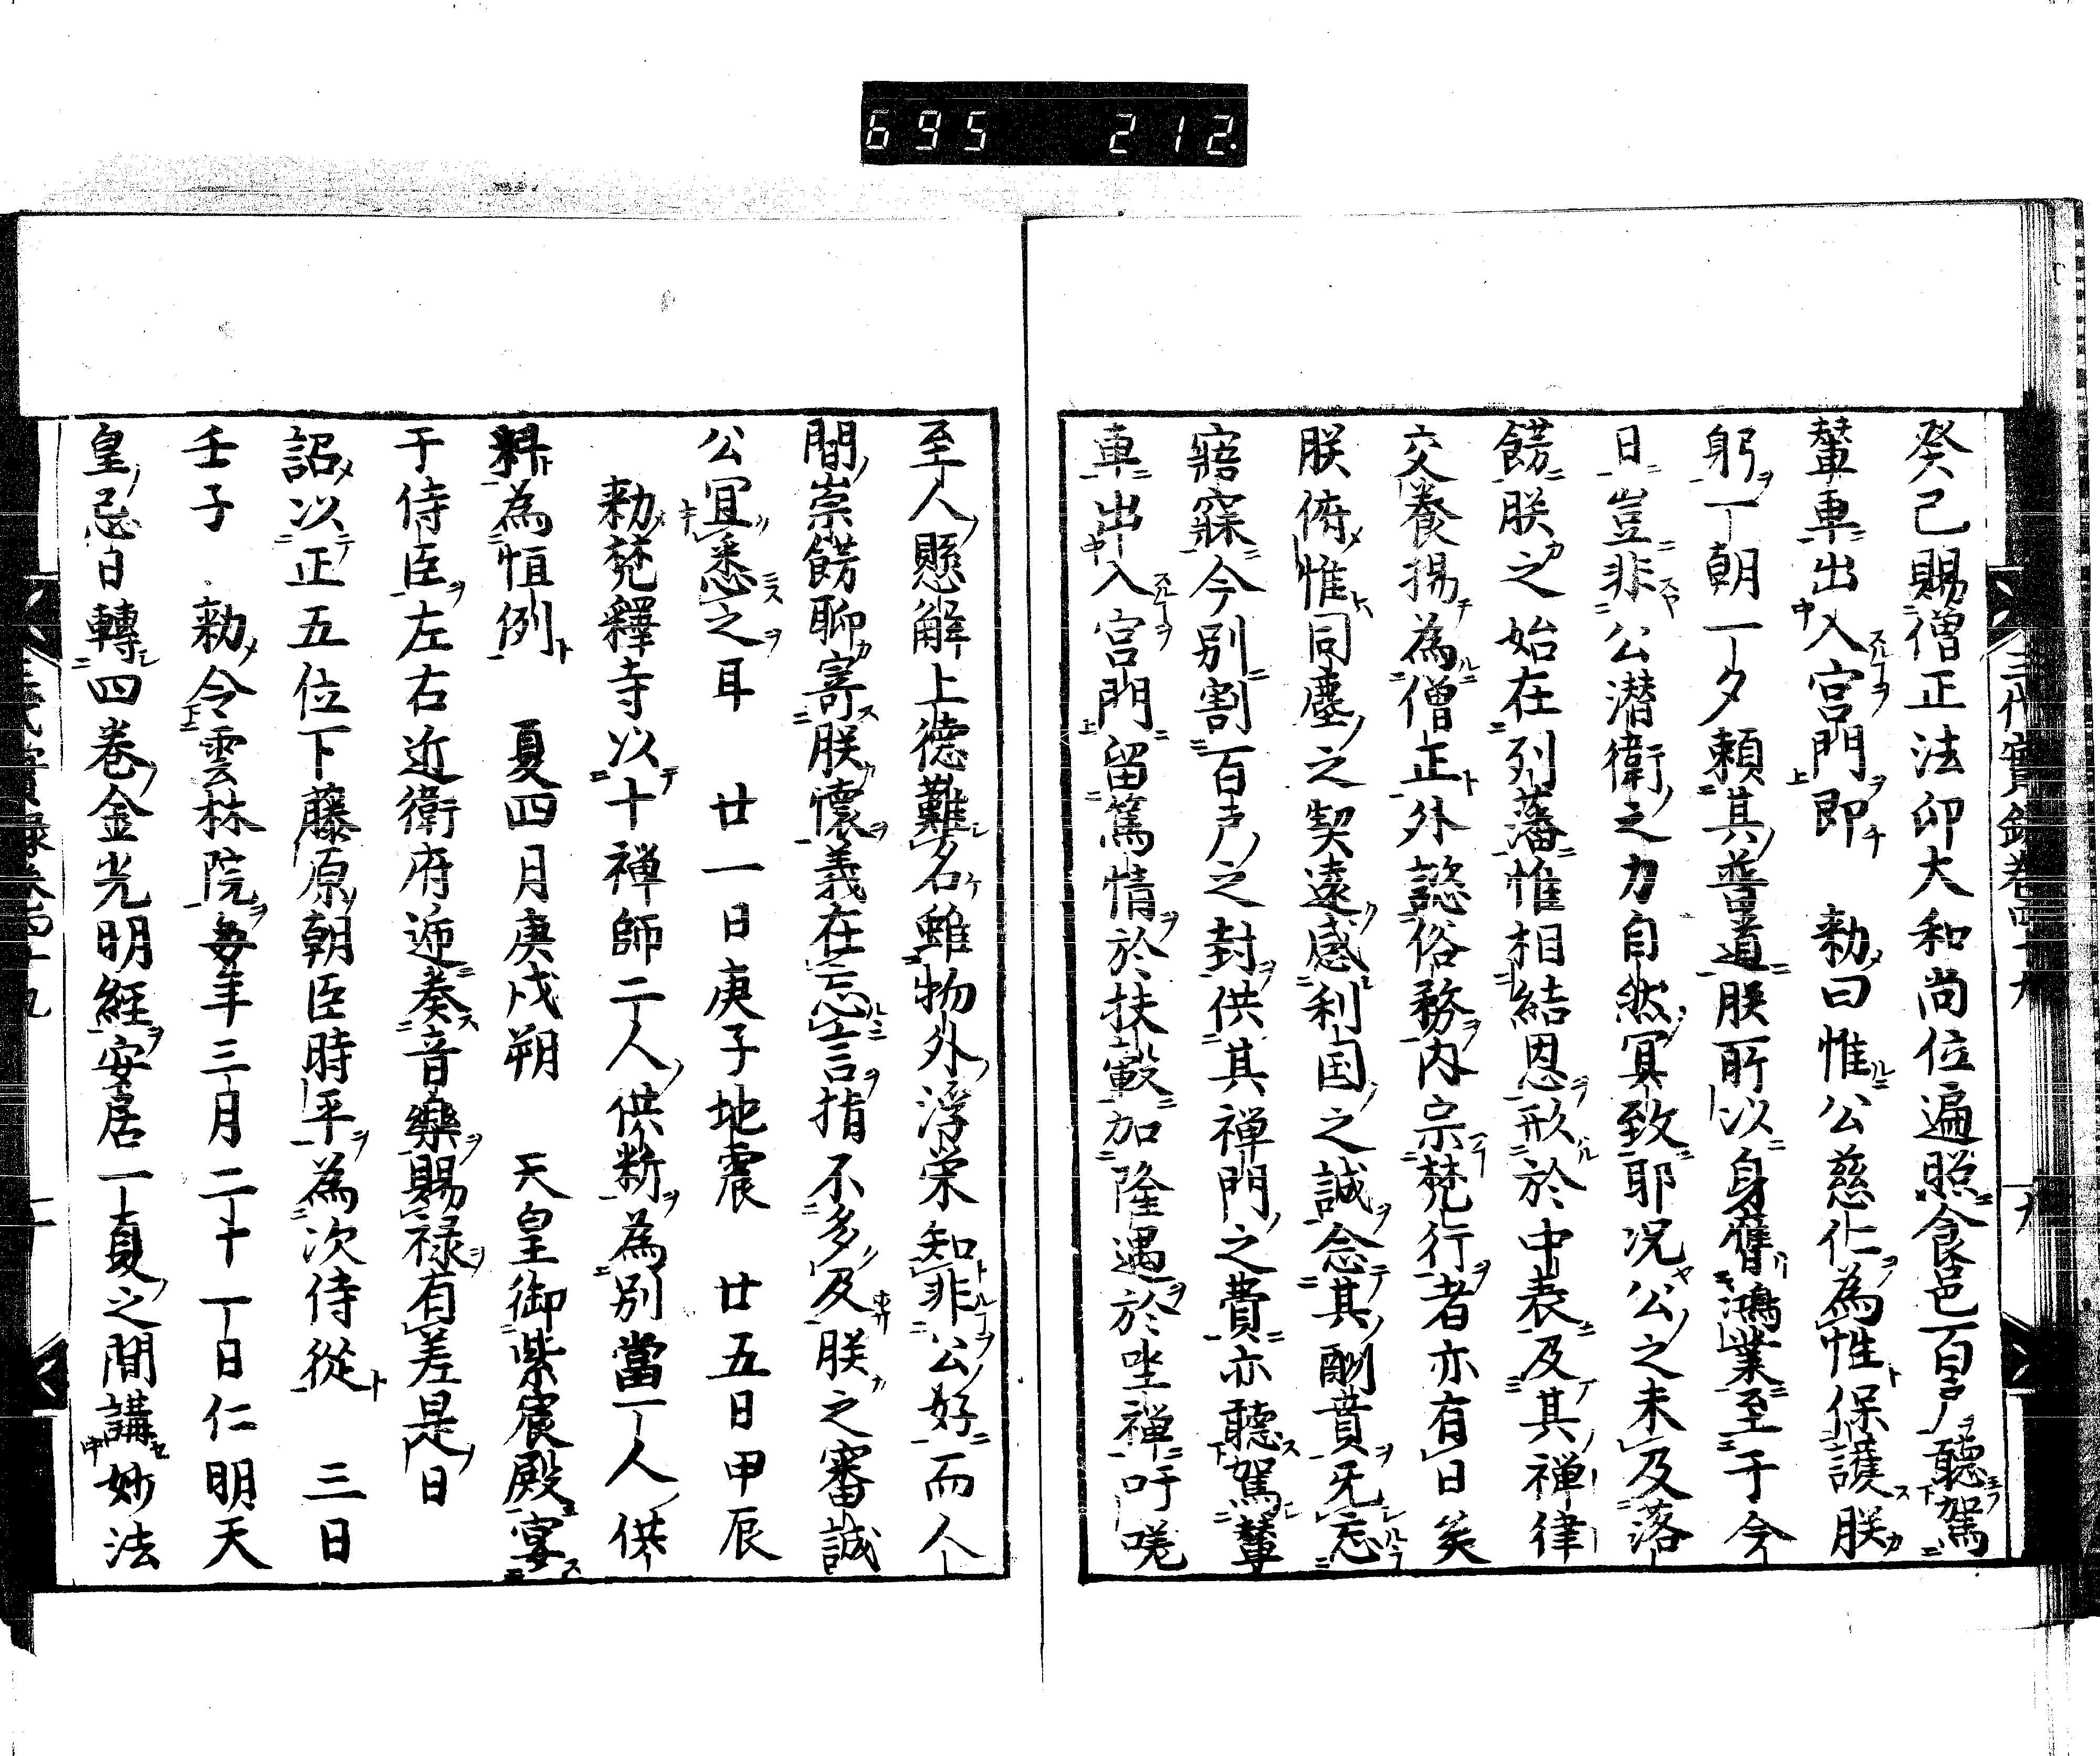 695 212.
三代實錄卷四十九 九
癸己賜僧正法印大和尚位遍照食邑百戸聽駕
輦車出入宮門即 勅曰惟公慈仁為性保護朕
躬一朝一夕頼其普道朕所以身膺鴻業至于今
日豈非公潜衛之力自然冥致耶况公之未及落
餝朕之始在列藩惟相結恩形於中表及其禅律
交養揚為僧正外懿俗務内宗梵行者亦有日矣
朕俯惟同塵之契遠感利国之誠念其酬賁无忘
寤寐今別割百戸之封供其禅門之費亦聽駕輦
車出入宮門留篤情於扶轂加隆遇於坐禅吁嗟
至人懸解上德難名雖物外浮栄知非公好而人
間崇餝聊寄朕懷義在忘言指不多及朕之審誠
公宜悉之耳 廿一日庚子地震 廿五日甲辰
勅梵釋寺以十禅師二人供断為別當一人供
料為恒例 夏四月庚戌朔 天皇御紫宸殿宴
于侍臣左右近衛府遞奏音樂賜禄有差是日
詔以正五位下藤原朝臣時平為次侍從 三日
壬子 勅令雲林院每年三月二十一日仁明天
皇忌日轉四巻金光明經安居一夏之間講妙法